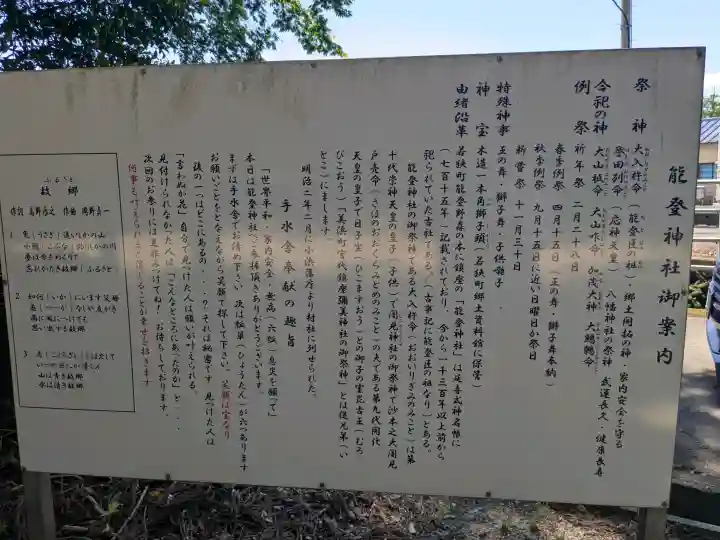 能登神社御案内
祭神 大入杵命（能登臣の祖）郷土開拓の神・家内安全を守る
誉田別命（応神天皇）八幡神社の祭神 武運長久・健康長寿
合祀の神 大山祇命 大山咋命 加茂大神 大鷦鷯命
例祭 祈年祭 二月二十八日
春季例祭 四月十五日（王の舞・獅子舞奉納）
秋季例祭 九月十五日に近い日曜日か祭日
新嘗祭 十一月三十日
特殊神事 王の舞・獅子舞・子供囃子
神宝 木造一本角獅子頭（若狭町郷土資料館に保管）
由緒沿革 若狭町能登野森の本に鎮座の「能登神社」は延喜式神名帳に
（七百十五年）記載されており、今から一千三百年以上前から
祀られていた古社である。（古事記に能登臣の祖なり）とある。
能登神社の御祭神である大入杵命（おおいりきみのみこと）は第
十代崇神天皇の皇子（子供）で闇見神社の御祭神で沙本之大闇見
戸売命（さほのおおくらみとめのみこと）の夫である第九代開化
天皇の皇子で日子坐（ひこますおう）との御子の室毘古王（むろ
びこおう）「美浜町宮代鎮座彌美神社の御祭神」とは従兄弟（い
とこ）にまします。
明治二年二月に小浜藩庁より村社に列せられた。
手水舎奉献の趣旨
「世界平和・家内安全・無病（六瓢）息災を願って」
本日は能登神社へご参拝頂きありがとうございます。
まずは手水舎でお清め下さい。次は瓢箪（ひょうたん）が六つあります
お願いごとをとなえながら笑顔で探して下さい。笑顔は宝なり
後の一つはどこにあるの・・・？それは秘密です。見つけた人は
「言わぬが花」自分で見つけた人は願いが叶えられる。
見付けられなかった人は「こんなところにあったのか」と・・・
次回のお参りには是非みつけてね！お待ちしております。
ふるさと
故郷
作詞 高野辰之 作曲 岡野貞一
1 兎（うさぎ）追いしかの山
小鮒（こぶな）釣りしかの川
夢は今もめぐりて
忘れがたき故郷（ふるさと）
2 如何（いか）にいます父母
恙（つつが）なしや友がき
雨に風につけても
思い出ずる故郷
3 志（こころざし）をはたして
いつの日にか帰らん
山は青き故郷
水は清き故郷